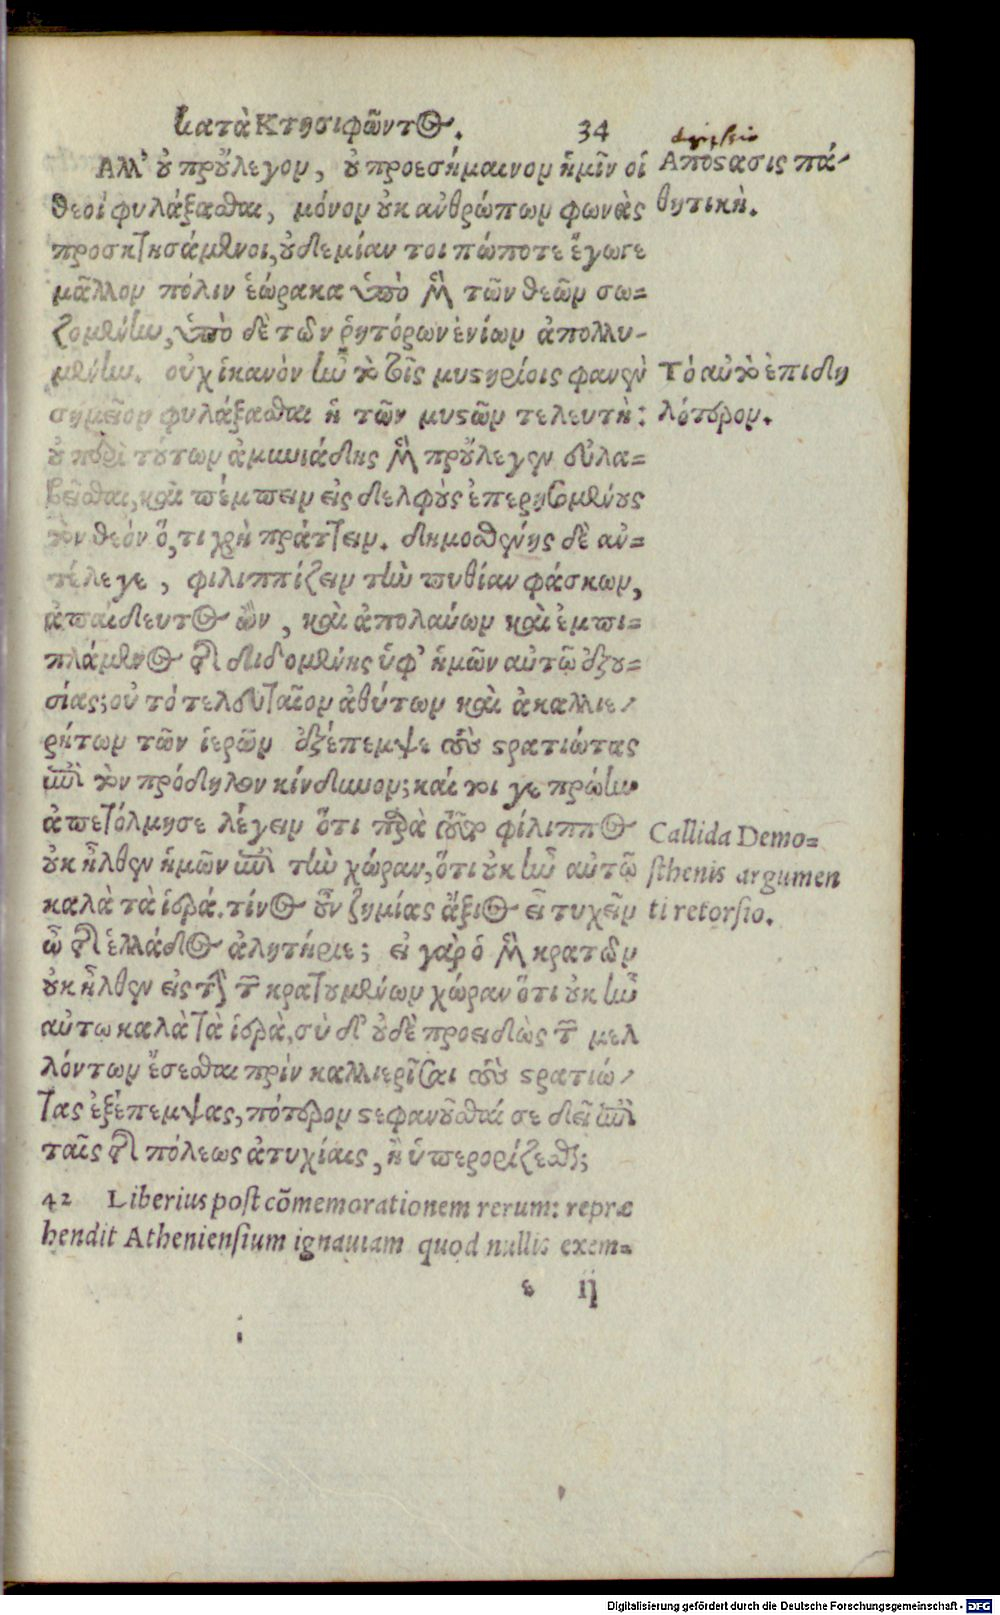 κατὰ Κτησιφῶντος. 34
Αλλ' οὐ προὔλεγον, οὐ προεσήμαινον ἡμῖν οἱ
θεοὶ φυλάξασθαι, μόνον οὐκ ἀνθρώπων φωνὰς
προσκτησάμενοι, οὐδεμίαν τοι πώποτε ἔγωγε
μᾶλλον πόλιν ἑώρακα ὑπὸ μὲν τῶν θεῶν σω=
ζομένην, ὑπὸ δὲ τῶν ῥητόρων ἐνίων ἀπολλυ-
μένην. οὐχ ἱκανὸν ἦν τὸ τοῖς μυστηρίοις φανὲν
σημεῖον φυλάξασθαι ἡ τῶν μυστῶν τελευτὴ;
οὐ περὶ τούτων ἀμεινιάδης μὲν προὔλεγεν εὐλα=
βεῖσθαι, καὶ πέμπειν εἰς δελφοὺς ἐπερησομένους
τὸν θεόν ὅ,τι χρὴ πράττειν. δημοσθένης δὲ ἀν=
τέλεγε, φιλιππίζειν τὴν πυθίαν φάσκων,
ἀπαίδευτος ὢν, καὶ ἀπολαύων καὶ ἐμπι=
πλάμενος τῆς διδομένης ὑφ' ἡμῶν αὐτῷ ἐξου=
σίας; οὐ τὸ τελευταῖον ἀθύτων καὶ ἀκαλλιε-
ρήτων τῶν ἱερῶν ἐξέπεμψε τοὺς στρατιώτας
ἐπὶ τὸν πρόδηλον κίνδυνον; καί τοι γε πρώην
ἀπετόλμησε λέγειν ὅτι παρὰ τοῦτο φίλιππος
οὐκ ἦλθεν ἡμῶν ἐπὶ τὴν χώραν, ὅτι οὐκ ἦν αὐτῷ
καλὰ τὰ ἱερά. τίνος οὖν ζημίας ἄξιος εἶ τυχεῖν
ὦ τῆς ἑλλάδος ἀλητήριε; εἰ γὰρ ὁ μὲν κρατῶν
οὐκ ἦλθεν εἰς τὴν τῶν κρατουμένων χώραν ὅτι οὐκ ἦν
αὐτῳ καλὰ τὰ ἱερὰ, σὺ δ' οὐδὲ προειδὼς τῶν μελ
λόντων ἔσεσθαι πρὶν καλλιερῆσαι τοὺς στρατιώ-
τας ἐξέπεμψας, πότερον στεφανοῦσθαί σε δεῖ ἐπὶ
ταῖς τῆς πόλεως ἀτυχίαις, ἢ ὑπερορίζεσθαι;
42 Liberius post cõmemorationem rerum: repræ
hendit Atheniensium ignauiam quod nullis exem=
ε ij
Αποστασις πά-
θητική.
Τὸ αὐτὸ ἐπιδη
λότερον.
Callida Demo=
sthenis argumen
ti retorsio.
Digitalisierung gefördert durch die Deutsche Forschungsgemeinschaft - DFG